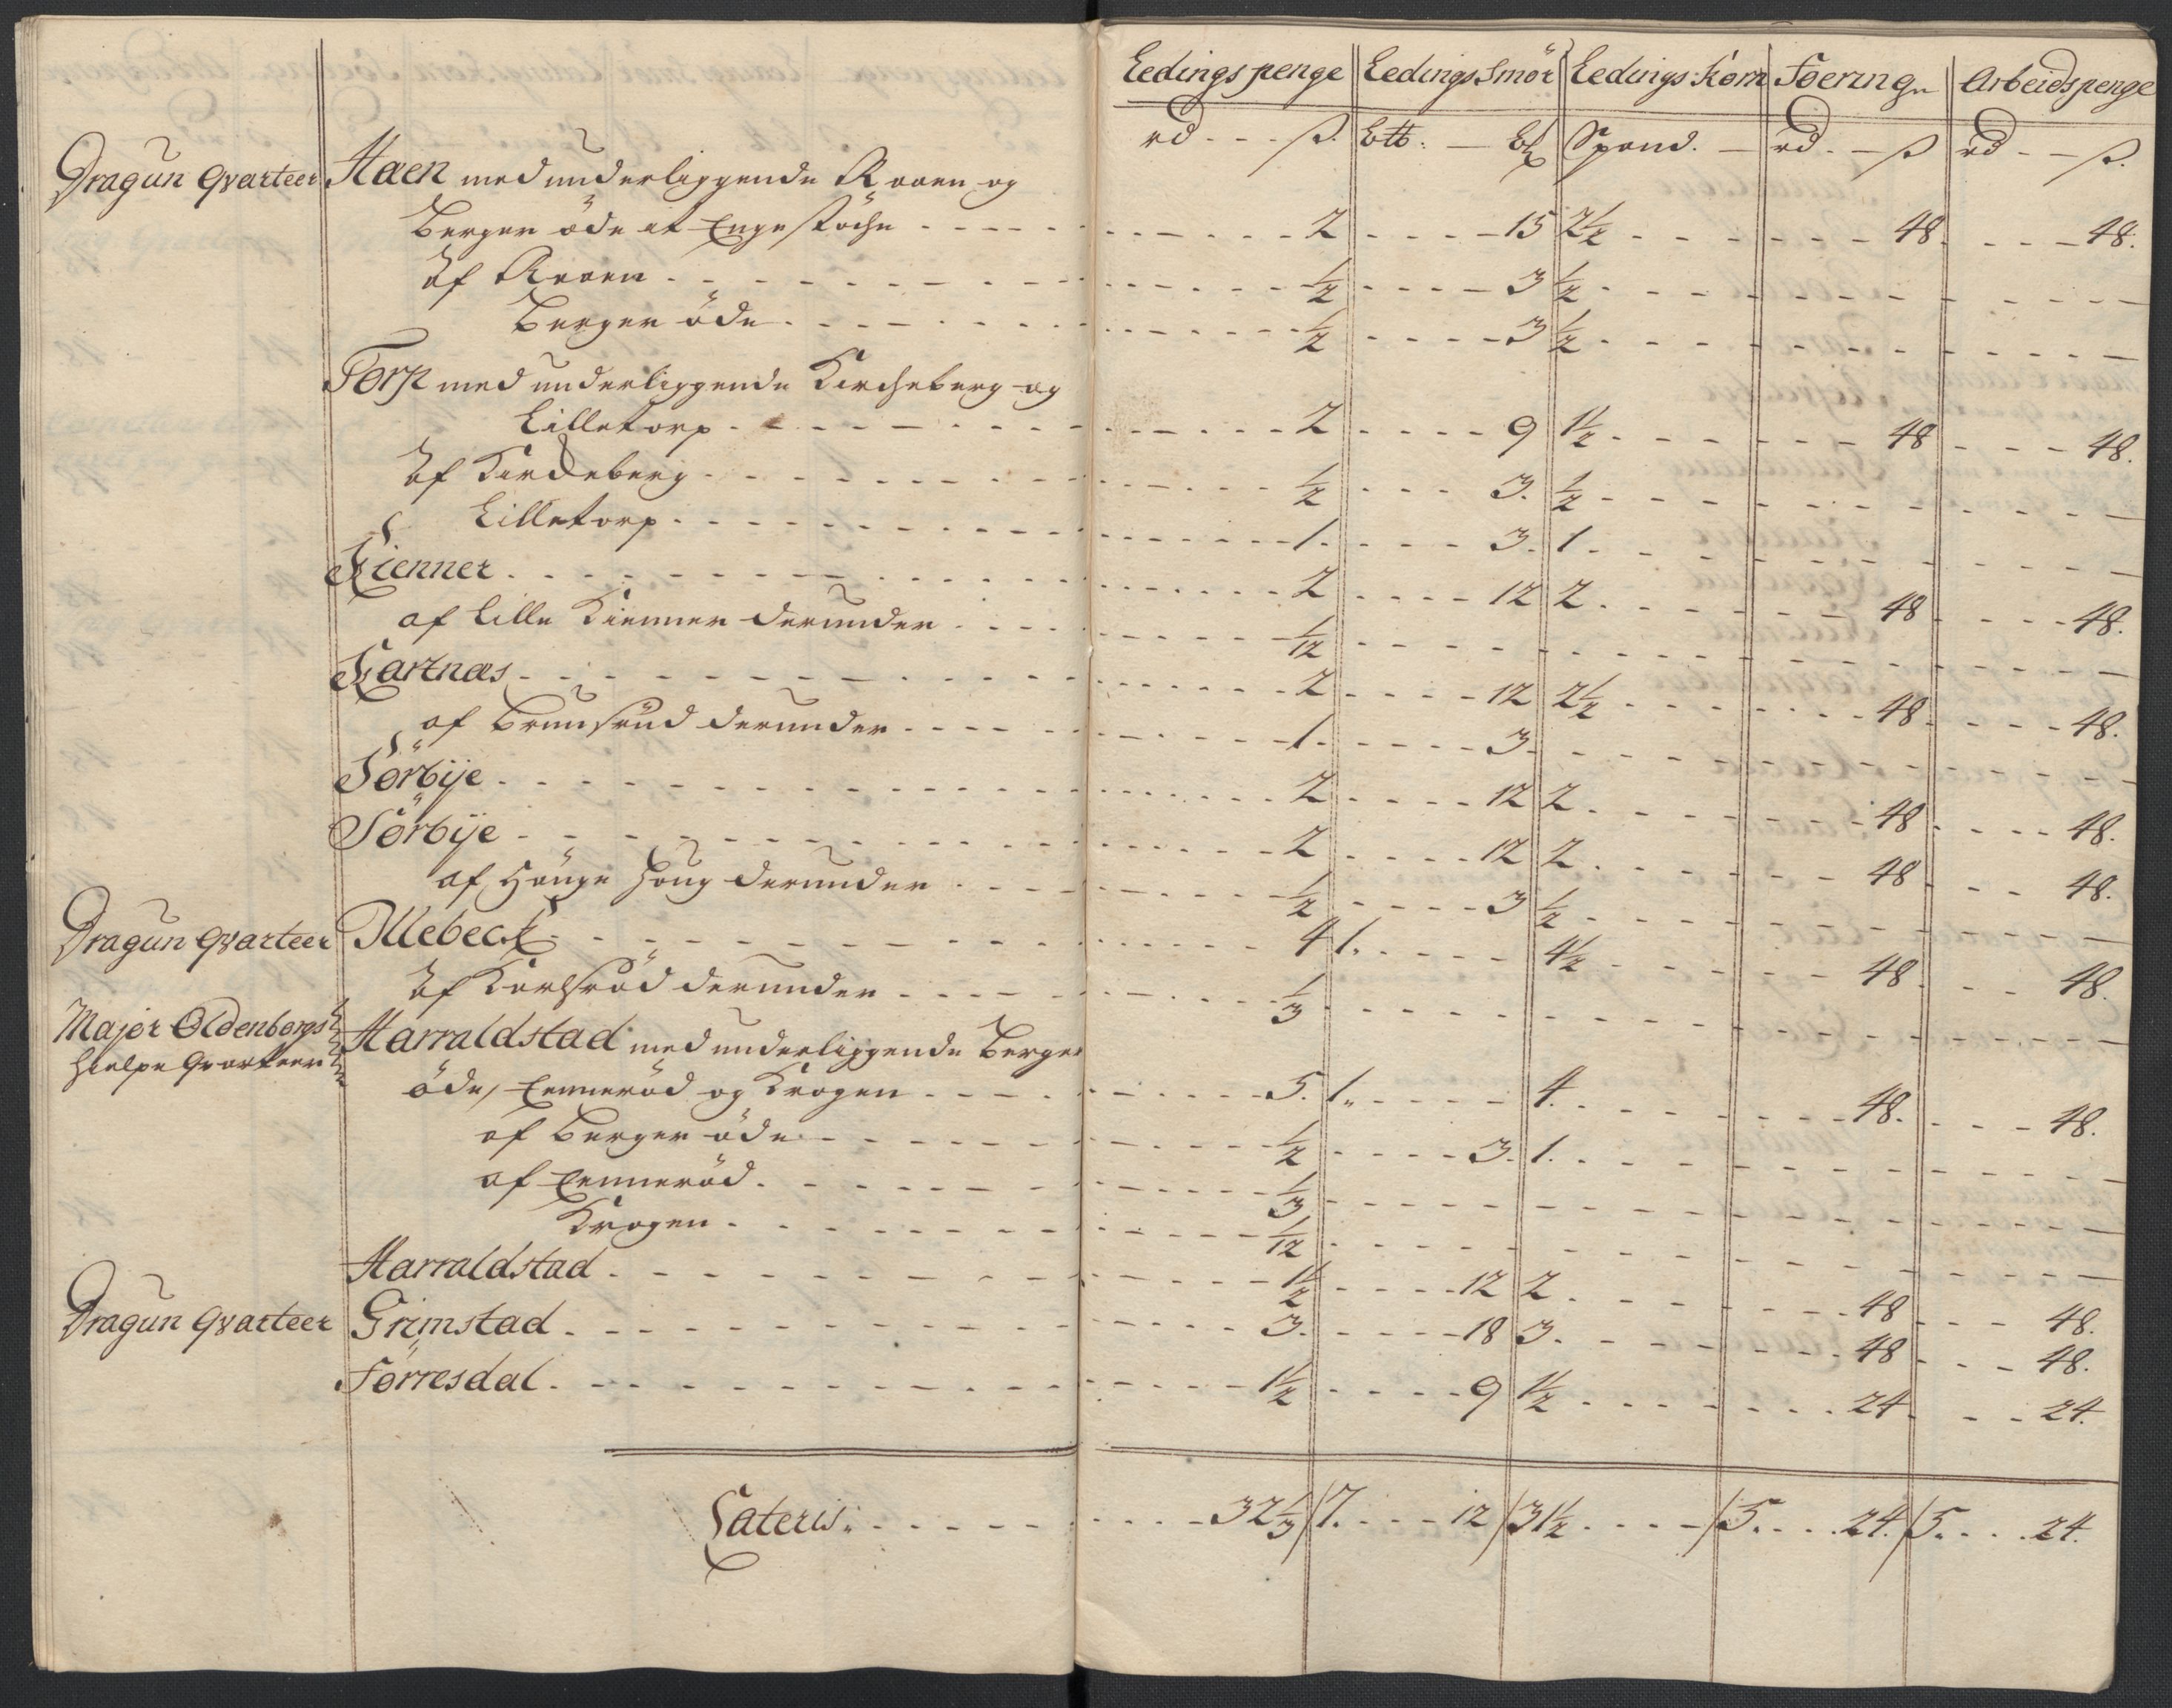 Ledingspenge Ledings Smör Ledings Korn Foering Arbeidspenge
rd - - - ß. Btt: - Bß Spand. - rd - - ß rd - - ß.
Dragun Qvarteer Haen med underliggende Raaen og
Berger öde et Enge støche 2 15 2½ 48 48.
Af Raaen ½ 3 ½
Berger öde ½ 3 ½
Torp med underliggende Kircheberg og
Lilletorp 2 9 1½ 48 48.
Af Kircheberg ½ 3. ½
Lilletorp 1. 3. 1.
Kienner 2 12 2. 48 48.
af Lille Kienner derunder 1/12
Kartnæs 2 12 2½ 48 48.
af Brunsrud derunder 1. 3.
Sörbÿe 2 12 2. 48 48.
Sörbÿe 2 12 2. 48 48.
af Houg derunder ½ 3 ½
Dragun Qvarteer Illebeck 4 1. 4½ 48 48.
Af Karlsröd derunder ⅓
Major Oldenborgs Harraldstad med underliggende Berger
Hielpe Qvarteer öde, Enneröd og Krogen 5. 1. 4. 48. 48.
af Berger öde ½ 3. 1.
af Enneröd ⅓
Krogen 1/12
Harraldstad 1½ 12 2 48 48.
Dragun Qvarteer Grimstad 3. 18 3. 48 48.
Törresdal 1½ 9 1½ 24. 24.
Lateris 32⅓ 7. 12 31½ 5. 24. 5. 24.